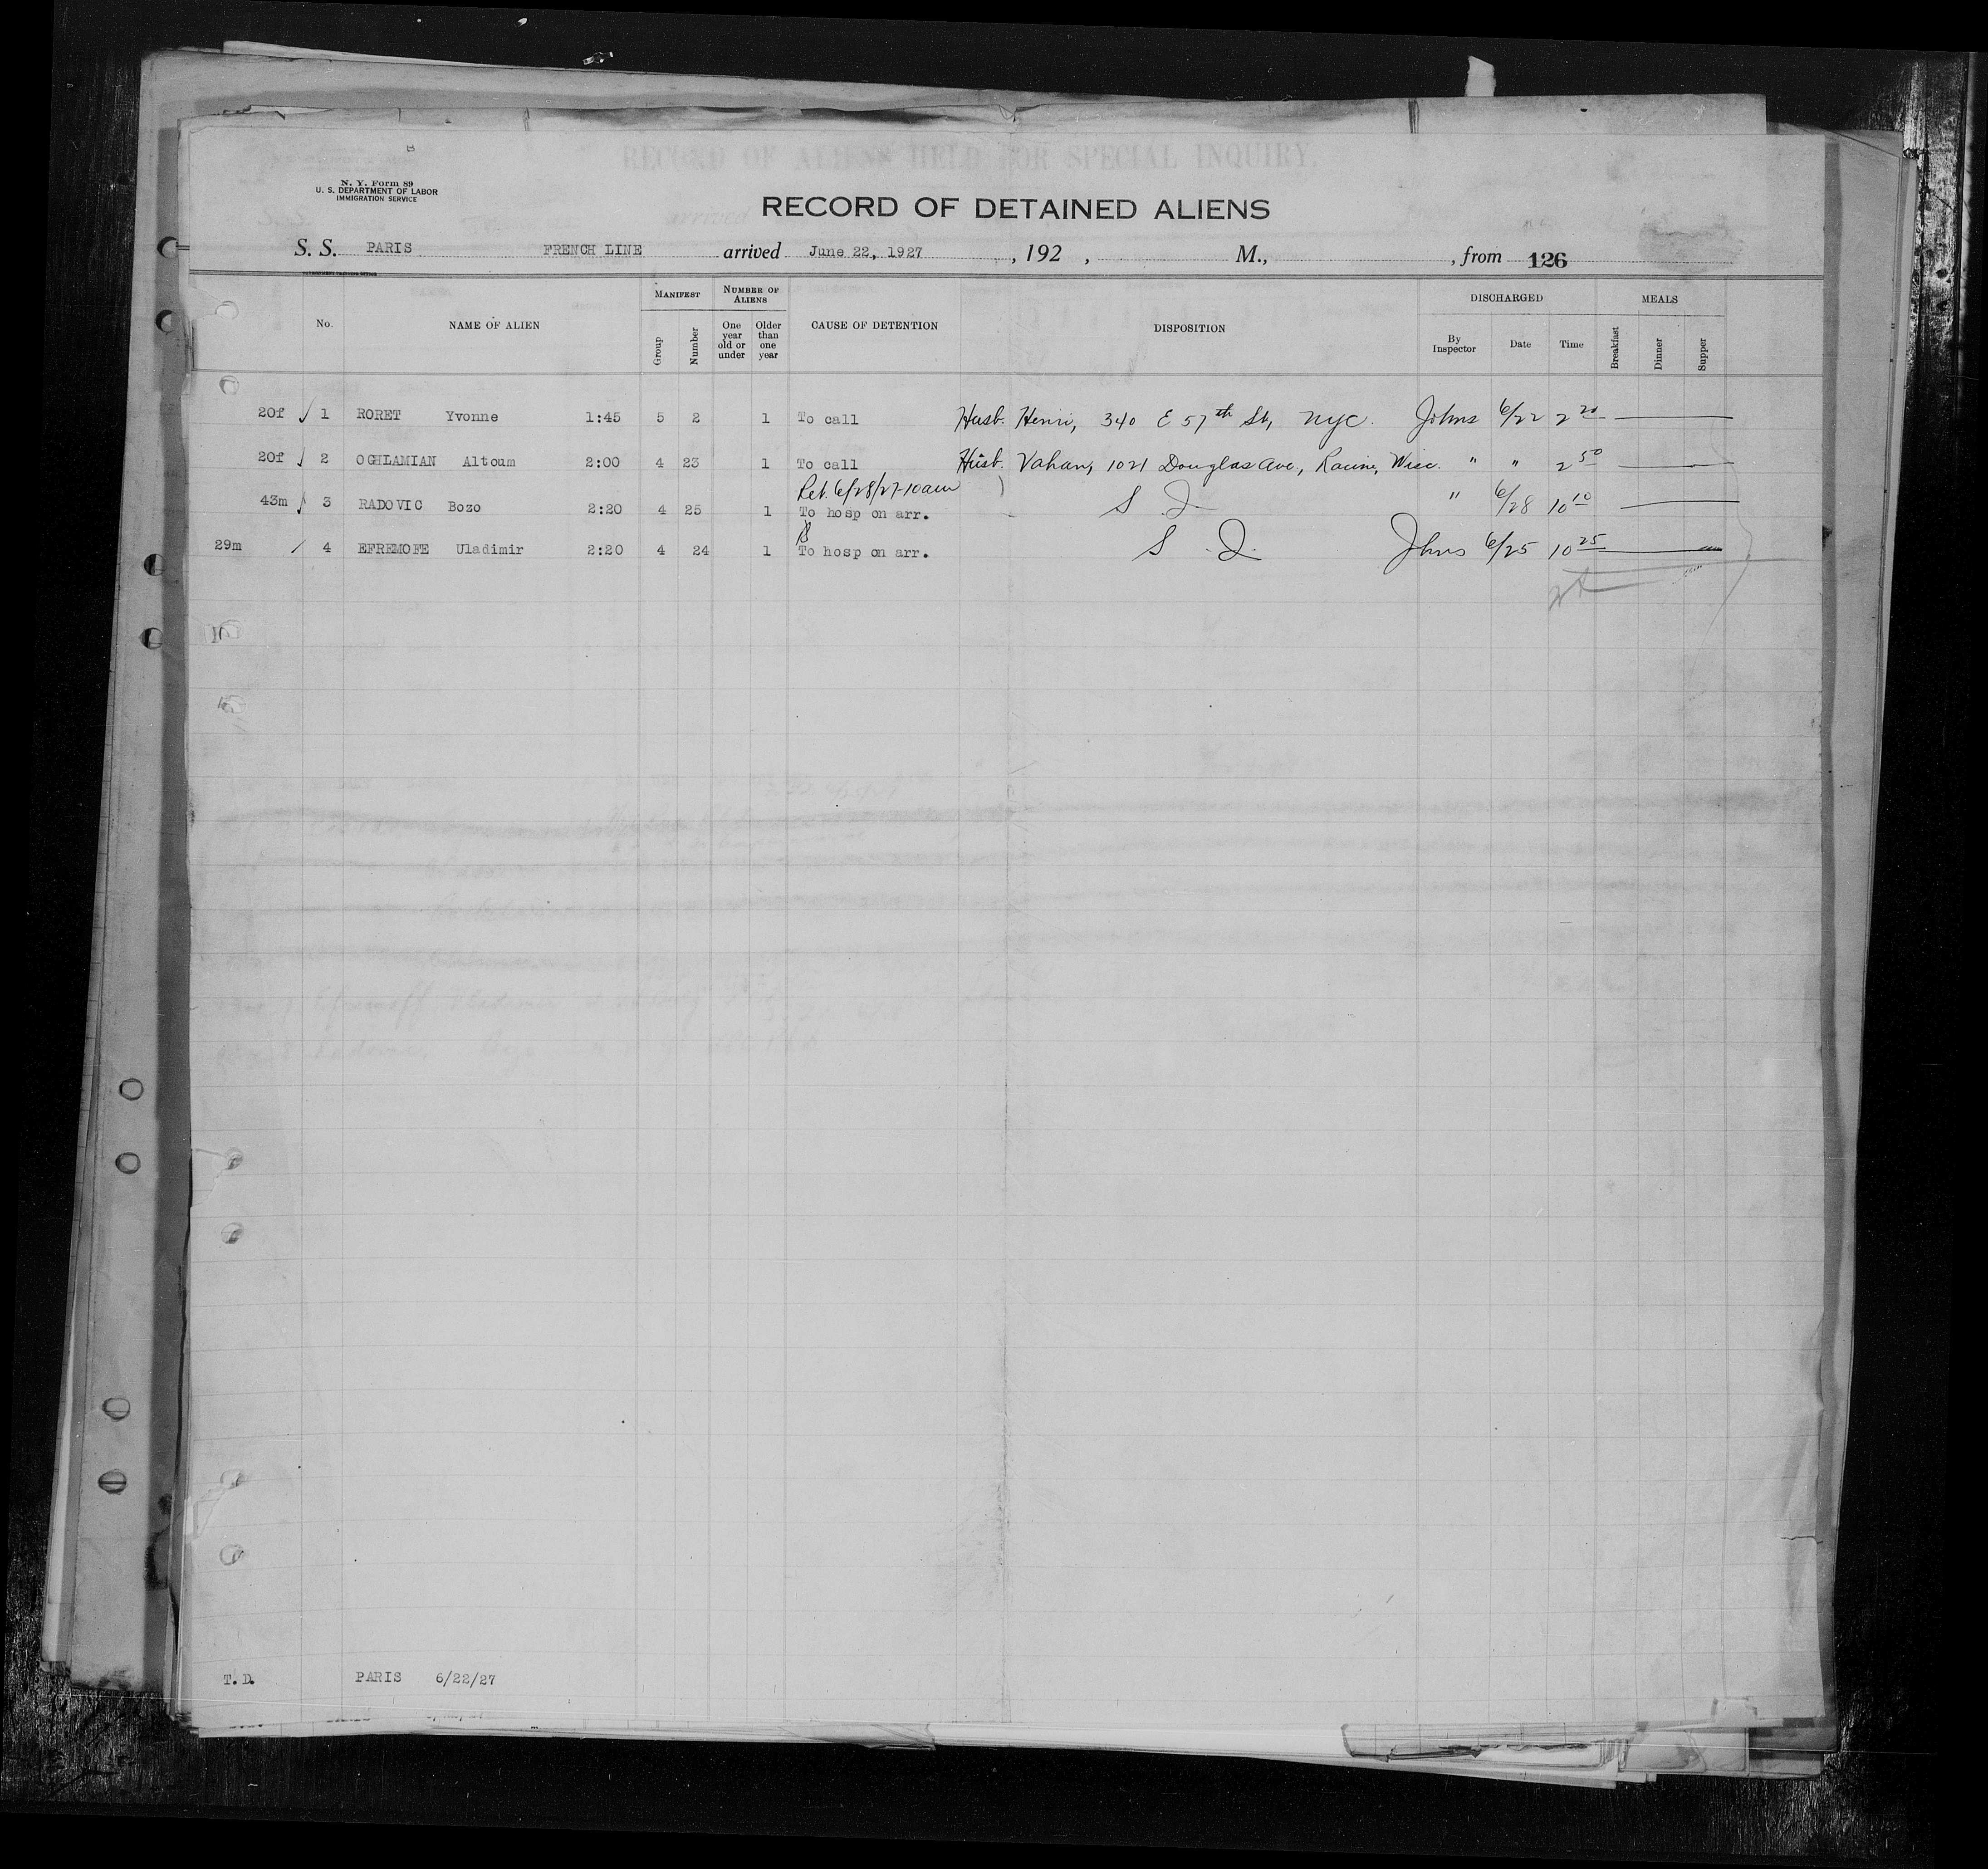 RECORD OF ALIENS HELD FOR SPECIAL INQUIRY.
N. Y. Form 89
U. S. DEPARTMENT OF LABOR
IMMIGRATION SERVICE
RECORD OF DETAINED ALIENS
S. S. PARIS FRENCH LINE arrived June 22, 1927 , 192 , M., , from 126
No. NAME OF ALIEN MANIFEST Group Number NUMBER OF ALIENS One year old or under Older than one year CAUSE OF DETENTION DISPOSITION DISCHARGED By Inspector Date Time MEALS Breakfast Dinner Supper
20f 1 RORET Yvonne 1:45 5 2 1 To call Husb. Henri, 340 E 57th St, NYC. Johns 6/22 2 20
20f 2 OGHLAMIAN Altoum 2:00 4 23 1 To call Husb. Vahan, 1021 Douglas Ave., Racine, Wisc. " " 2 50
Ret. 6/28/27-10am
43m 3 RADOVIC Bozo 2:20 4 25 1 To hosp on arr. S I " 6/28 10 10
29m 4 EFREMOFE Uladimir 2:20 4 24 1 To hosp on arr. S. I. Johns 6/25 10 25
T. D. PARIS 6/22/27